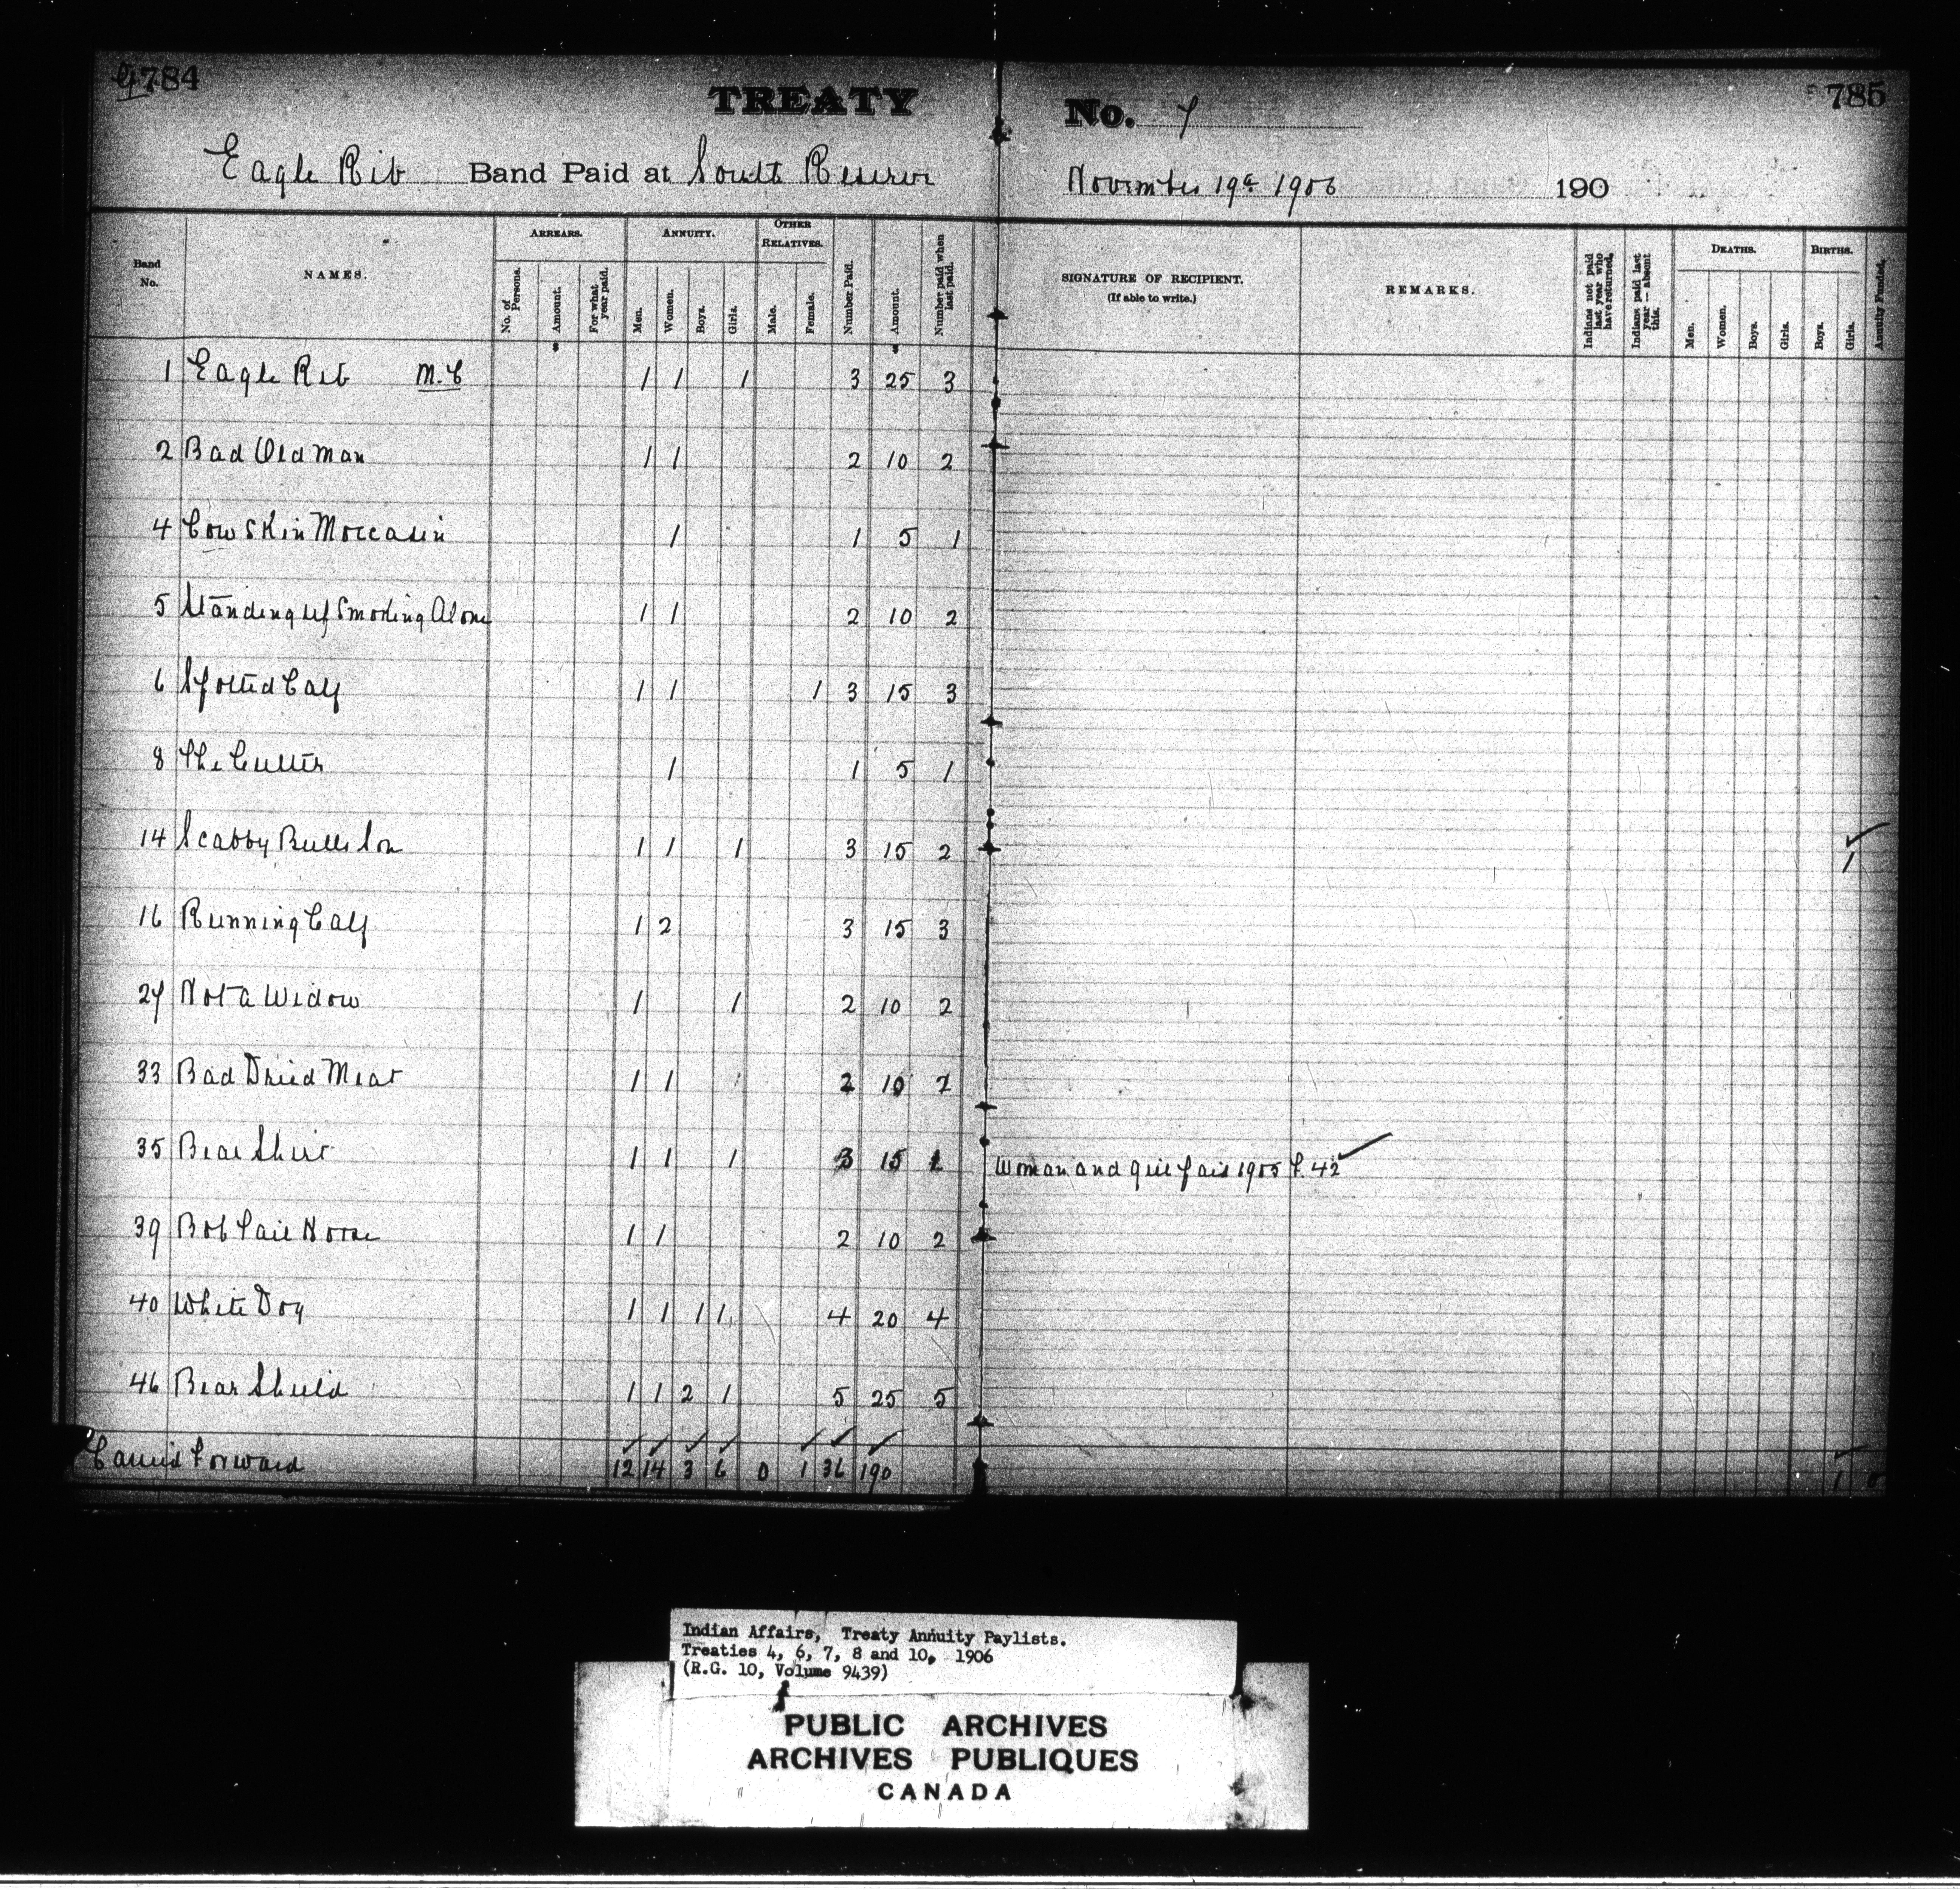 784
TREATY No. 7
785
Eagle Rib Band Paid at South Reserve November 19th 1906 190
Band No. NAMES. ARREARS. No. of Persons. Amount. For what year paid. ANNUITY. Men. Women. Boys. Girls. OTHER RELATIVES. Male. Female. Number Paid. Amount. Number paid when last paid. SIGNATURE OF RECIPIENT. (If able to write.) REMARKS. Indians not paid last year who have returned. Indians paid last year — absent this. DEATHS. Men. Women. Boys. Girls. BIRTHS. Boys. Girls. Annuity Funded.
$ $
1 Eagle Rib M.C 1 1 1 3 25 3
2 Bad Old Man 1 1 2 10 2
4 Cow Skin Moccasin 1 1 5 1
5 Standing up Smoking Alone 1 1 2 10 2
6 Spotted Calf 1 1 1 3 15 3
8 The Cutter 1 1 5 1
14 Scabby Bulls Son 1 1 1 3 15 2 1
16 Running Calf 1 2 3 15 3
27 Not a Widow 1 1 2 10 2
33 Bad Dried Meat 1 1 2 10 2
35 Bear Shirt 1 1 1 3 15 1 Woman and girl paid 1905 P. 42
39 Bob Tail Horse 1 1 2 10 2
40 White Dog 1 1 1 1 4 20 4
46 Bear Shield 1 1 2 1 5 25 5
Carried Forward 12 14 3 6 0 1 36 190 1 0
Indian Affairs, Treaty Annuity Paylists.
Treaties 4, 6, 7, 8 and 10, 1906
(R.G. 10, Volume 9439)
PUBLIC ARCHIVES
ARCHIVES PUBLIQUES
CANADA